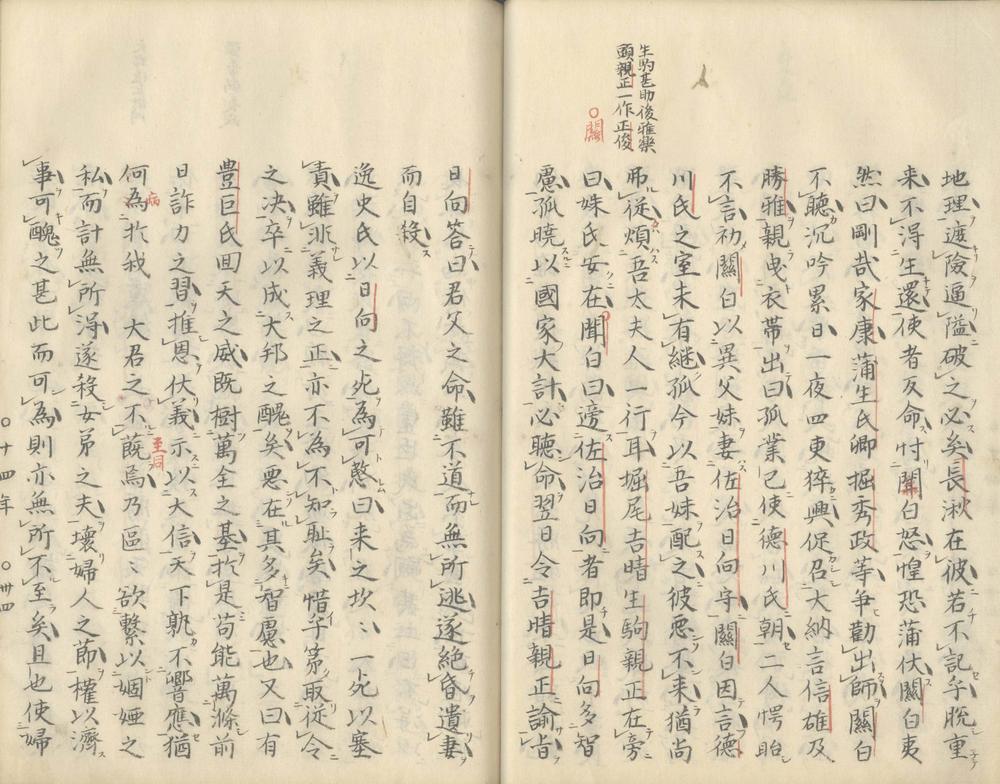 生駒甚助後雅樂
頭親正一作正俊
〇關
地理遮險逼隘破之必矣長湫在彼若不記乎脫重
来不淂生還使者反命忖關白怒惶恐蒲伏關白夷
然曰剛哉家康蒲生氏卿掘秀政等争勸出師關白
不聽沉吟累日一夜四更猝興促召大納言信雄及
勝雅親曳衣帶出曰孤業已使德川氏朝二人愕眙
不言初關白以異父妹妻佐治日向守關白因言德
川氏之室未有継孤今以吾妹配之彼悪不来猶尚
弗従煩吾太夫人一行耳掘尾吉晴生駒親正在旁
曰姝氏安在聞白曰邊佐治日向者即是日向多智
慮孤曉以國家大計必聽命翌日令吉晴親正諭旨
日向答曰君父之命雖不道而無所逃遂絶昏遺妻
而自殺
逸史氏以日向之死為可愍曰来之坎〻一死以塞
責雖非義理之正亦不為不知恥矣惜乎苐敢従令
之决卒以成大邦之醜矣悪在其多智慮也又曰有
豊臣氏囬天之威既樹萬全之基於是苟能萬滌前
日詐力之習推恩伏義示以大信天下孰不響應猶
何病為於我 大君之不蕘焉乃區〻欲繫以婣婭之
至洞
私而計無所淂遂殺女弟之夫壊婦人之節權以濟
事可醜之甚此而可為則亦無所不至矣且也使婦
〇十四年 〇卅四